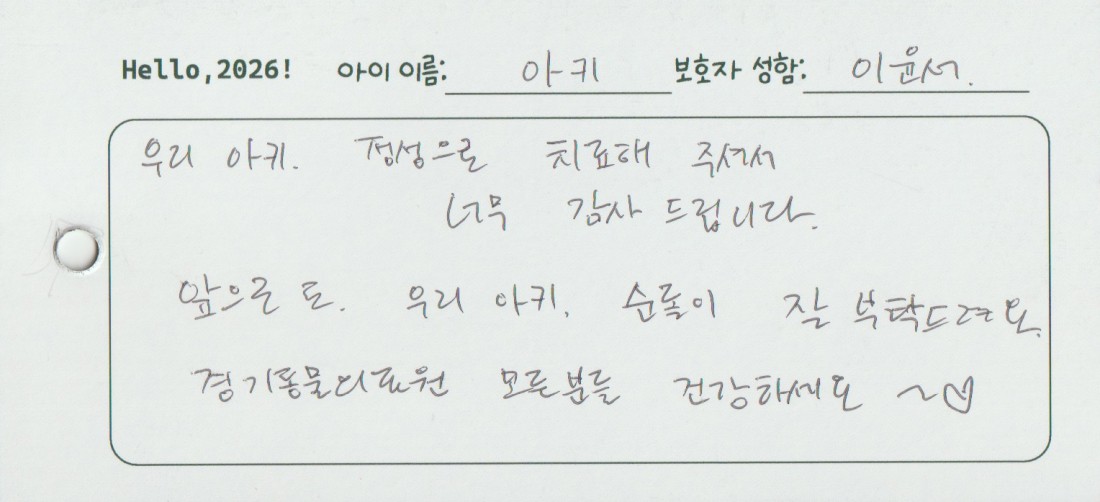 Hello,2026! 아이 이름: 아키 보호자 성함: 이윤서.
우리 아키. 정성으로 치료해 주셔서
너무 감사 드립니다.
앞으로 도. 우리 아키, 순돌이 잘 부탁드려요.
경기동물의료원 모든분들 건강하세요 ~♡